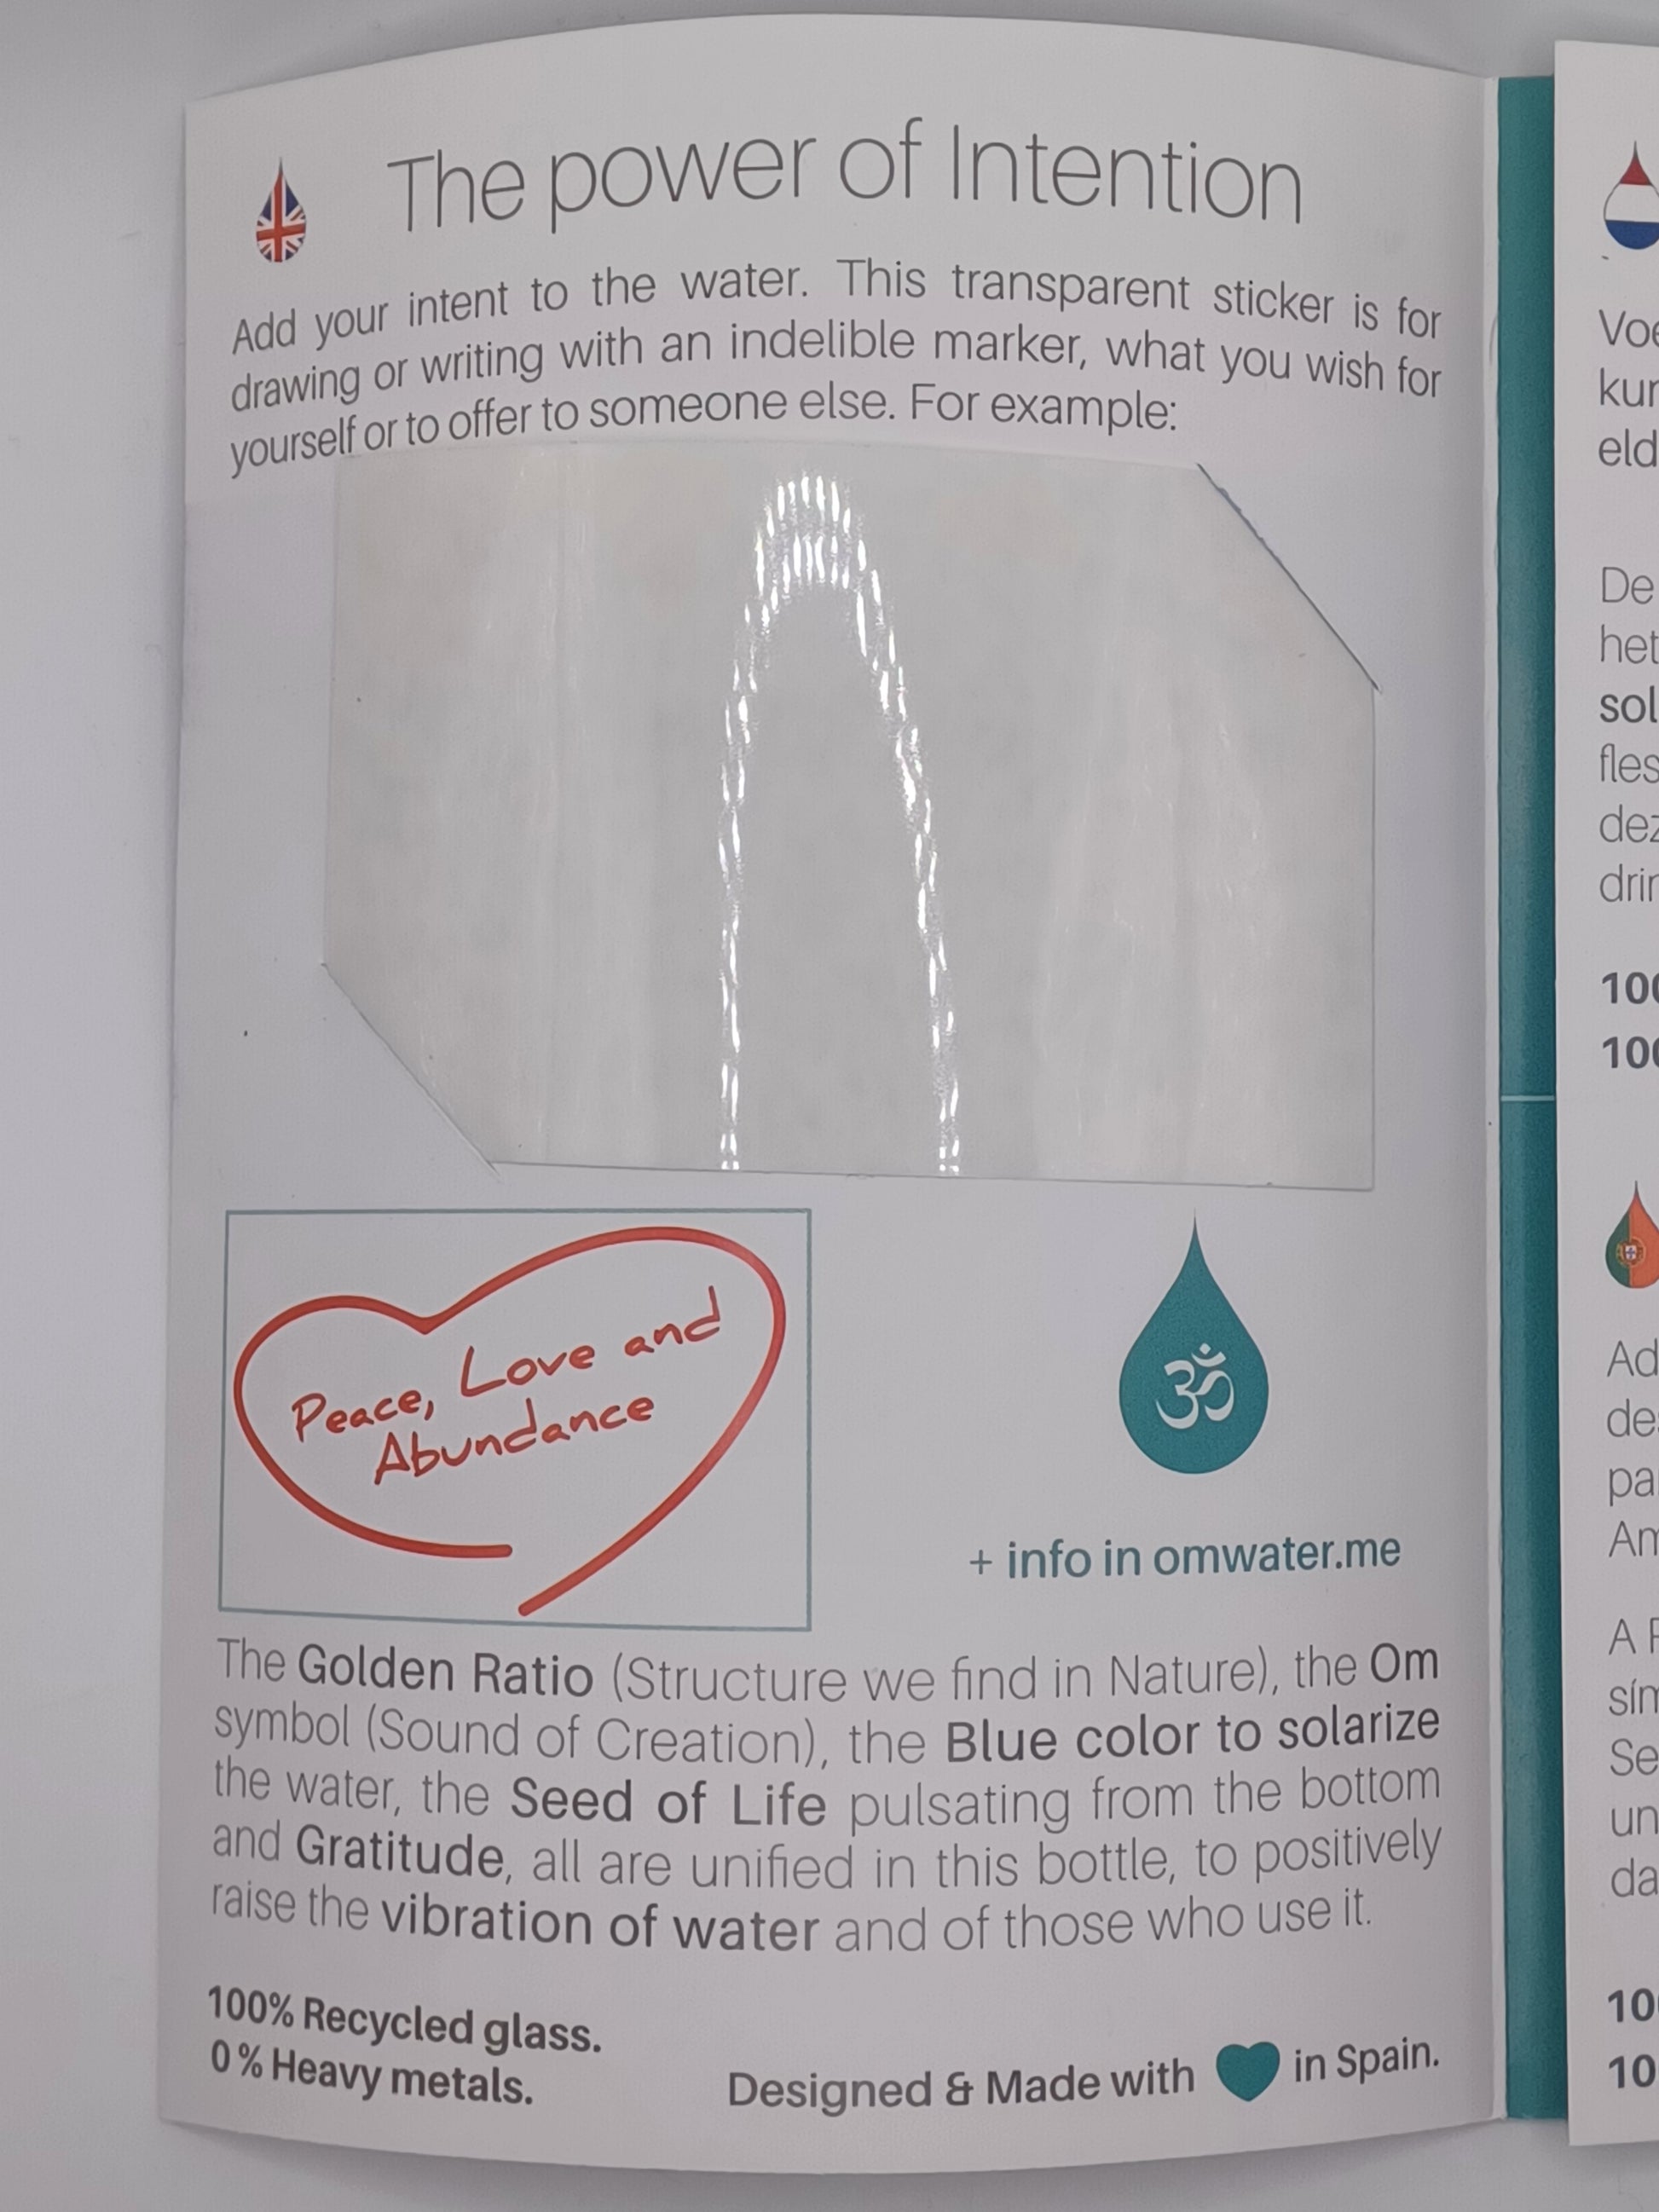 The power of Intention
Add your intent to the water. This transparent sticker is for
drawing or writing with an indelible marker, what you wish for
yourself or to offer to someone else. For example:
Peace, Love and
Abundance
ॐ
+ info in omwater.me
The Golden Ratio (Structure we find in Nature), the Om
symbol (Sound of Creation), the Blue color to solarize
the water, the Seed of Life pulsating from the bottom
and Gratitude, all are unified in this bottle, to positively
raise the vibration of water and of those who use it.
100% Recycled glass.
0% Heavy metals.
Designed & Made with in Spain.
De
het
Ad
A